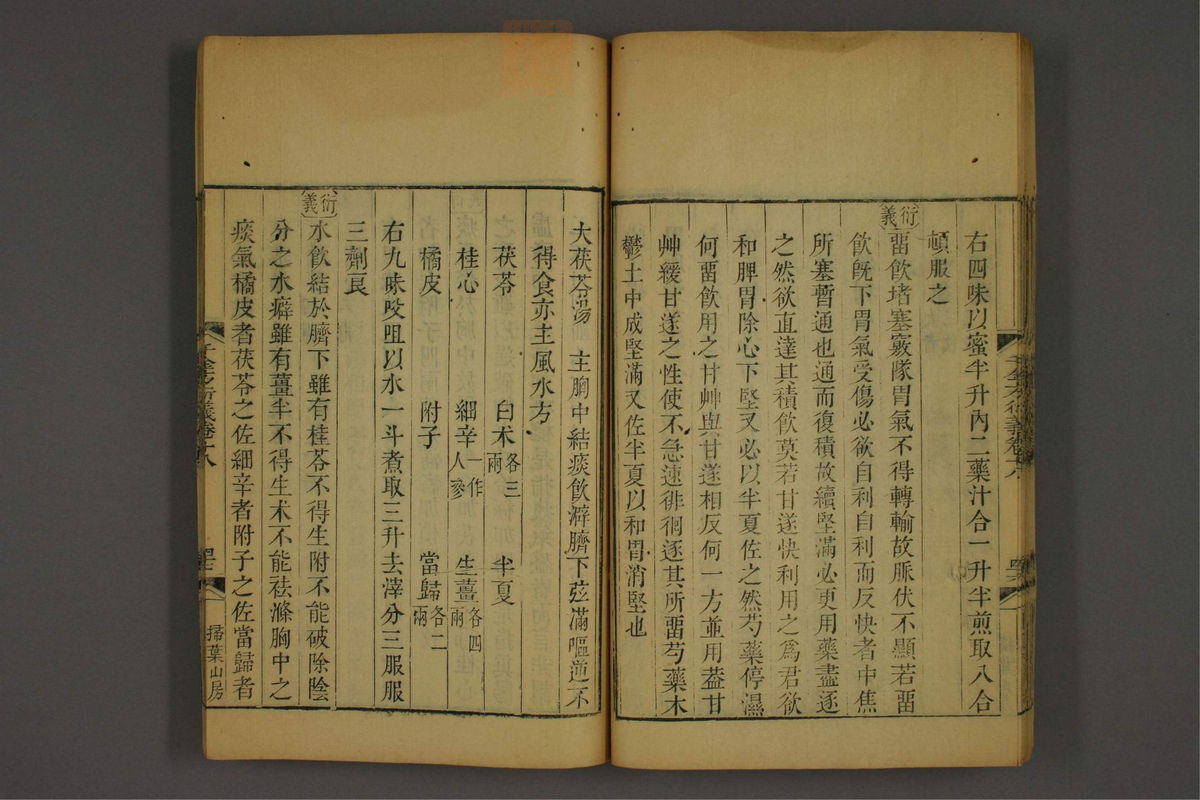 右四味以蜜半升內二藥汁合一升半煎取八合
頓服之
衍義
畱飮堵塞竅隧胃氣不得轉輸故脈伏不顯若畱
飮旣下胃氣受傷必欲自利自利而反快者中焦
所塞暫通也通而復積故續堅滿必更用藥盡逐
之然欲直達其積飮莫若甘遂快利用之爲君欲
和脾胃除心下堅又必以半夏佐之然芍藥停濕
何畱飮用之甘艸與甘遂相反何一方並用葢甘
艸緩甘遂之性使不急速徘徊逐其所畱芍藥木
鬱土中成堅滿又佐半夏以和胃消堅也
大茯苓湯　主胸中結痰飮澼臍下弦滿嘔逆不
得食亦主風水方
茯苓　白术各三兩　半夏
桂心　細辛一作人參　生薑各四兩
橘皮　附子　當歸各二兩
右九味㕮咀以水一斗煮取三升去滓分三服服
三劑良
衍義
水飮結於臍下雖有桂苓不得生附不能破除陰
分之水癖雖有薑半不得生术不能祛滌胸中之
痰氣橘皮者茯苓之佐細辛者附子之佐當歸者
千金方衍義卷十八
掃葉山房